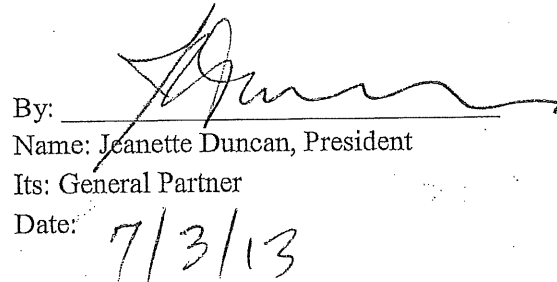 By:
Name: Jeanette Duncan, President
Its: General Partner
Date: 7/3/13